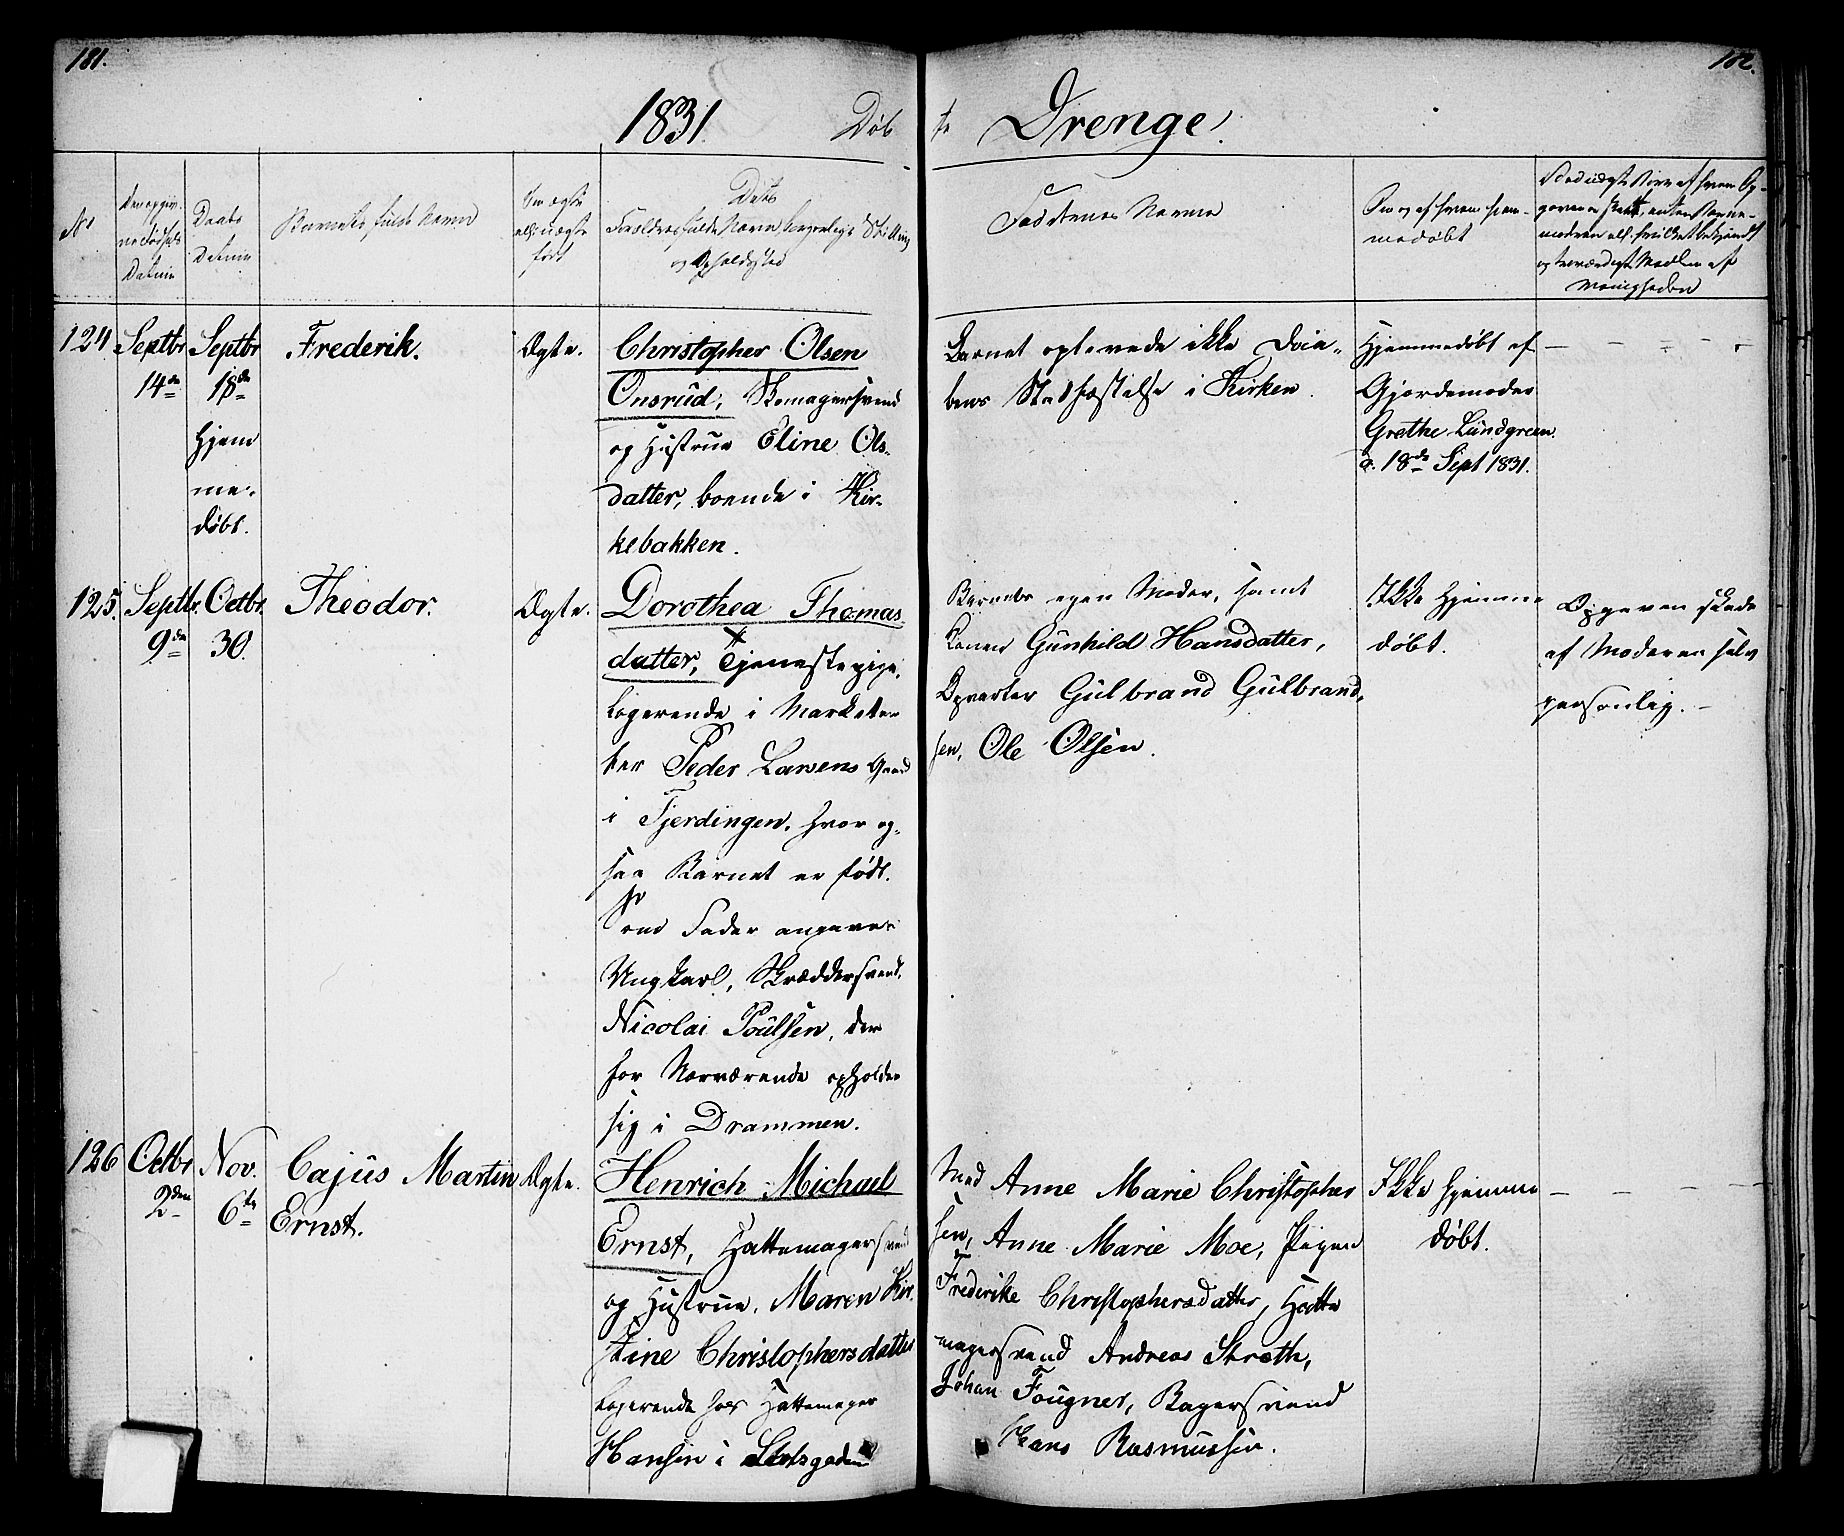 181.
182.
1831.
Døbte Drenge.
No
Den opgivne Fødsels Datum
Daabs Datum
Barnets fulde Navn
Om ægte ell: uægte født
Dets Forældres fulde Navn, borgerlige Stilling og Opholdssted
Faddernes Navne
Om og af hvem hjemmedøbt
124
Septbr
14de
Septbr
18de
hjem
me-
døbt.
Frederik.
Ægte.
Christopher Olsen
Onsrud, Skomagersvend
og Hustrue Eline Ols-
datter, boende i Kir-
kebakken.
Barnet oplevede ikke Daa-
bens Stadfæstelse i Kirken.
Hjemmedøbt af
Gjordemoder
Grethe Lundgreen
d. 18de Sept 1831.
125.
Septbr.
9de
Octbr.
30.
Theodor.
Ægte.
Dorothea Thomas
datter, Tjenestepige,
logerende i Marketen-
ter Peder Larsens Gaard
i Fjerdingen, hvor og-
saa Barnet er født.
Som Fader angaves
Ungkarl, Skræddersvend,
Nicolai Poulsen, der
for Nærværende opholder
sig i Drammen.
Barnets egen Moder, samt
Konen Gunhild Hansdatter,
Opvarter Gulbrand Gulbrand-
sen, Ole Olsen.
Ikke hjemme
døbt.
Opgaven skede
af Moderen selv
personlig.
126
Octbr
2den
Nov.
6te
Cajus Martin
Ernst.
Ægte.
Henrich Michael
Ernst, Hattemagersvend
og Hustrue, Maren Kir-
stine Christophersdatter
logerende hos Hattemager
Hansen i
Mad Anne Marie Christopher
sen, Anne Marie Moe, Pigen
Frederike Christophersdatter, Hatte
magersvend Andreas Stræth,
Johan Fougner, Bagersvend
Hans Rasmussen.
Ikke hjemme
døbt.